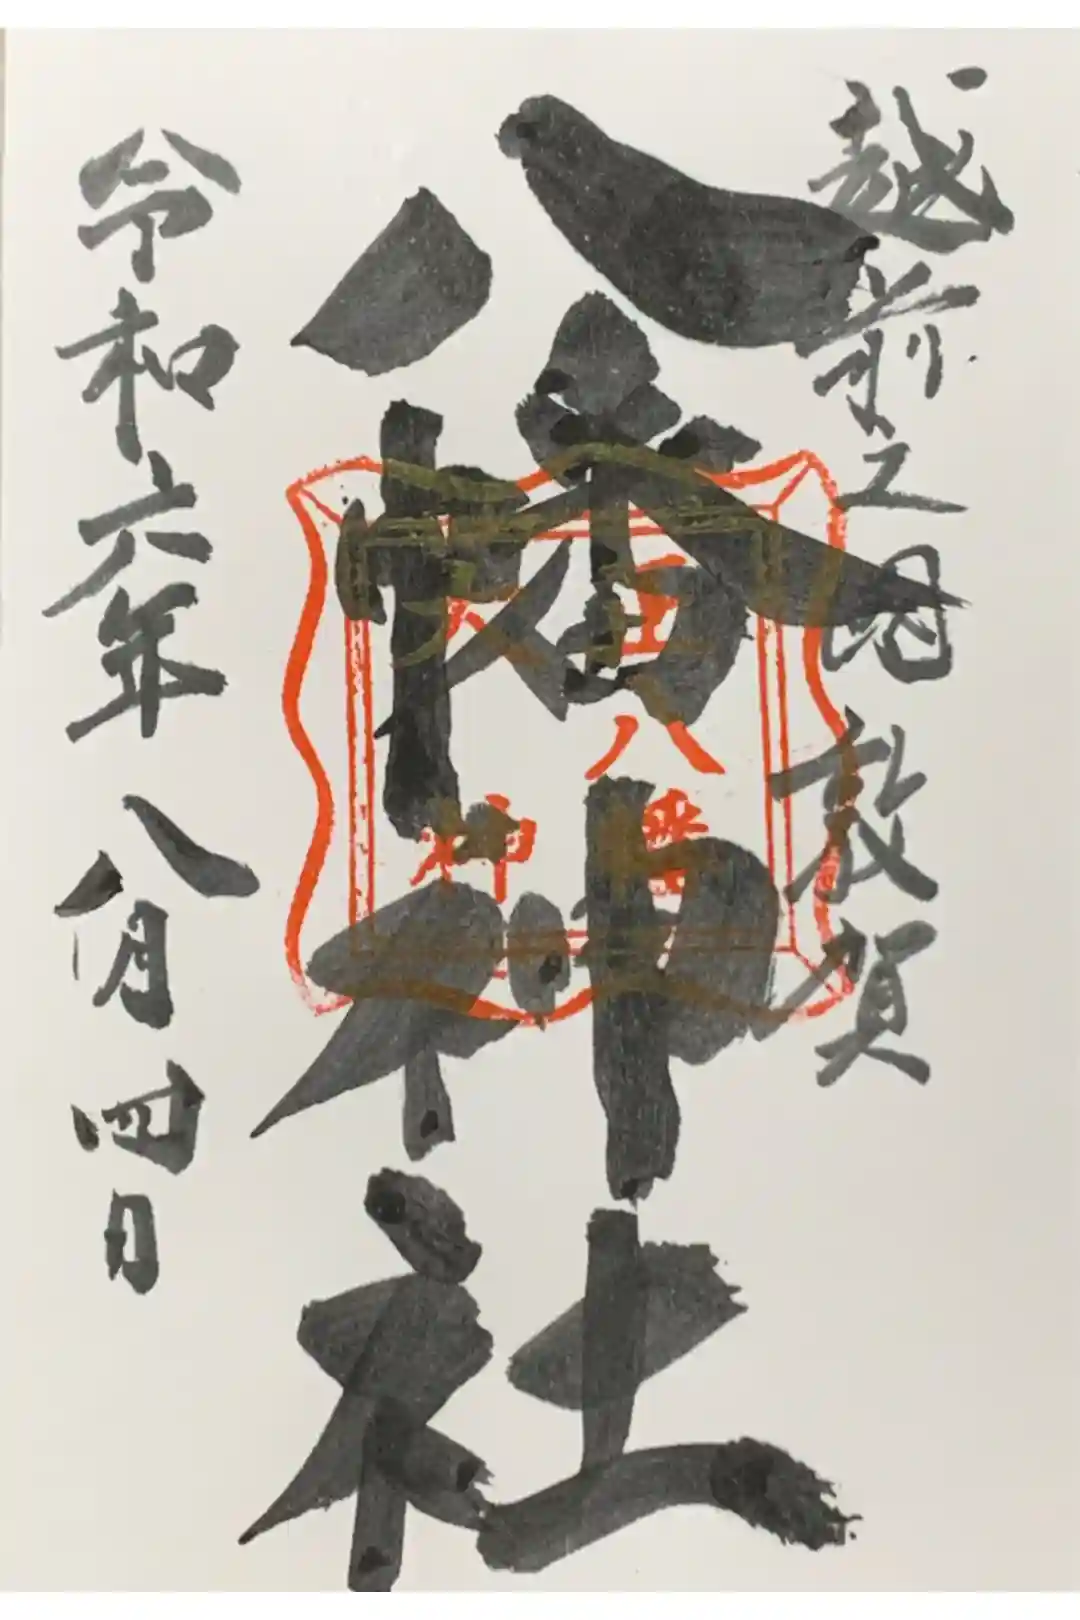 越前之国 敦賀
八幡神社
令和六年 八月 四日